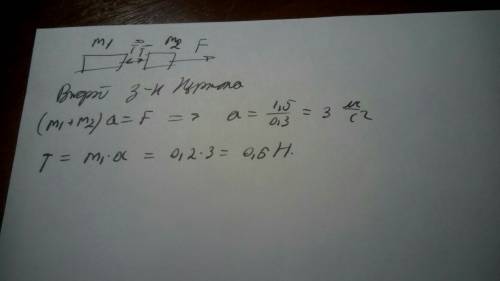 m1 T T m2 F
Второй з-н Ньютона
(m1+m2)a = F => a = 1,5/0,3 = 3 м/с2
T = m1·a = 0,2·3 = 0,6 Н.